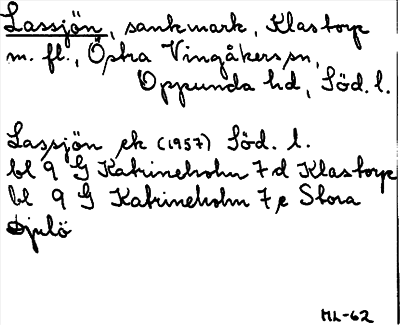 Lassjön, sankmark, Klastorp
m. fl., Östra Vingåkers sn,
Oppunda hd, Söd. l.
Lassjön ek (1957) Söd. l.
bl 9 G Katrineholm 7 d Klastorp
bl 9 G Katrineholm 7 e Stora
Djulö
ML-62